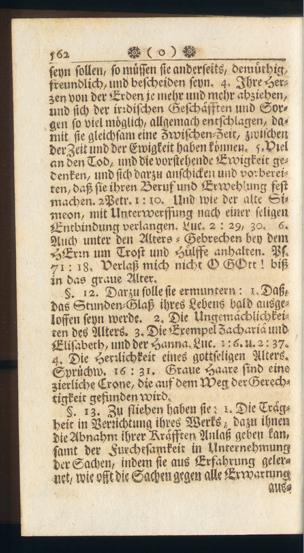 562 ❁ ( o ) ❁
seyn sollen, so müssen sie anderseits, demüthig,
freundlich, und bescheiden seyn. 4. Ihre Her-
zen von der Erden je mehr und mehr abziehen,
und sich der irdischen Geschäfften und Sor-
gen so viel möglich, allgemach entschlagen, da-
mit sie gleichsam eine Zwischen-Zeit, zwischen
der Zeit und der Ewigkeit haben können. 5. Viel
an den Tod, und die vorstehende Ewigkeit ge-
dencken, und sich darzu anschicken und vorberei-
ten, daß sie ihren Beruf und Erwehlung fest
machen. 2 Petr. 1: 10. Und wie der alte Si-
meon, mit Unterwerffung nach einer seligen
Entbindung verlangen. Luc. 2: 29, 30. 6.
Auch unter den Alters-Gebrechen bey dem
HErrn um Trost und Hülffe anhalten. Ps.
71: 18. Verlaß mich nicht O GOtt! biß
in das graue Alter.
§. 12. Darzu solle sie ermuntern: 1. Daß
das Stunden-Glaß ihres Lebens bald ausge-
loffen seyn werde. 2. Die Ungemächlichkei-
ten des Alters. 3. Die Exempel Zachariä und
Elisabeth, und der Hanna. Luc. 1: 6. u. 2: 37.
4. Die Herrlichkeit eines gottseligen Alters.
Sprüchw. 16: 31. Graue Haare sind eine
zierliche Crone, die auf dem Weg der Gerech-
tigkeit gefunden wird.
§. 13. Zu fliehen haben sie: 1. Die Träg-
heit in Verichtung ihres Wercks, dazu ihnen
die Abnahm ihrer Kräfften Anlaß geben kan,
samt der Furchtsamkeit in Unternehmung
der Sachen, indem sie aus Erfahrung geler-
net, wie offt die Sachen gegen alle Erwartung
aus-